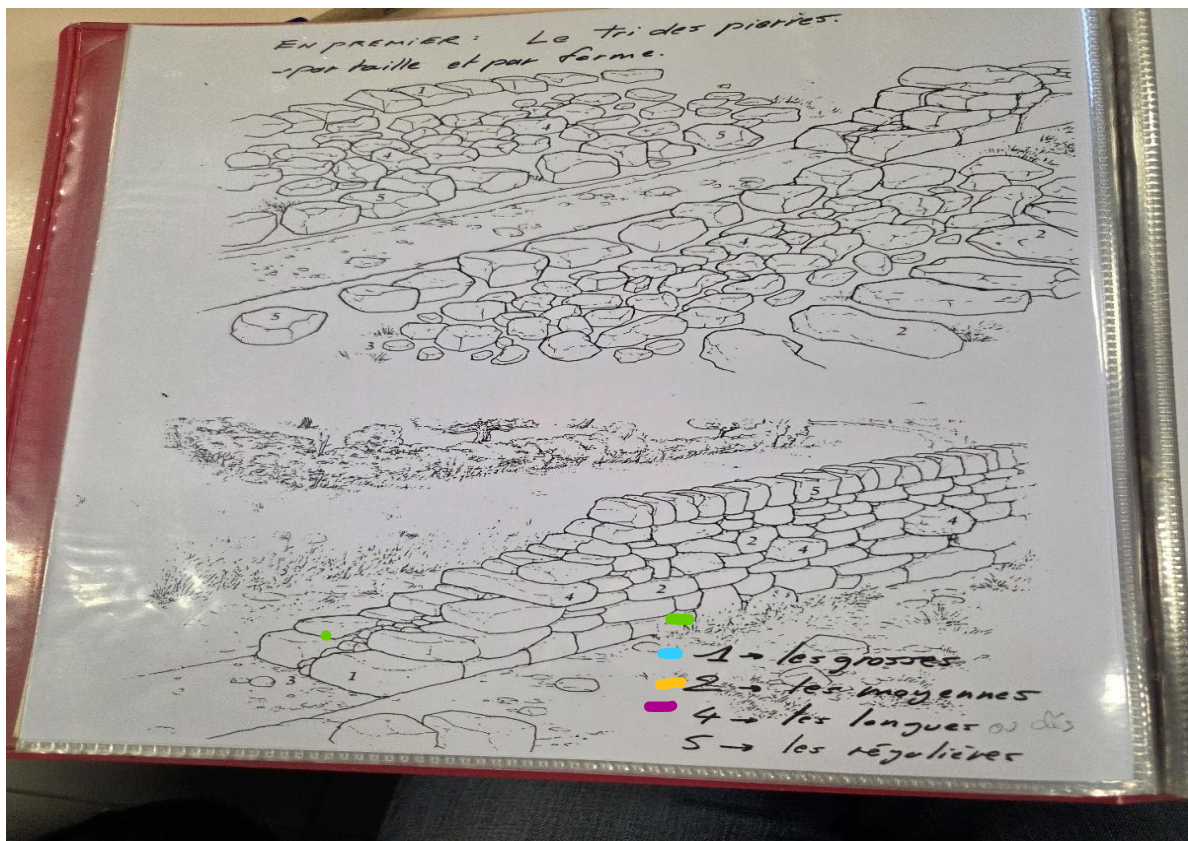 EN PREMIER : Le tri des pierres.
- par taille et par forme.
1
4
5
4
5
1
2
4
5
3
2
5
4
2
4
4
2
3
1
1 → les grosses
2 → les moyennes
4 → les longues ou clés
5 → les régulières